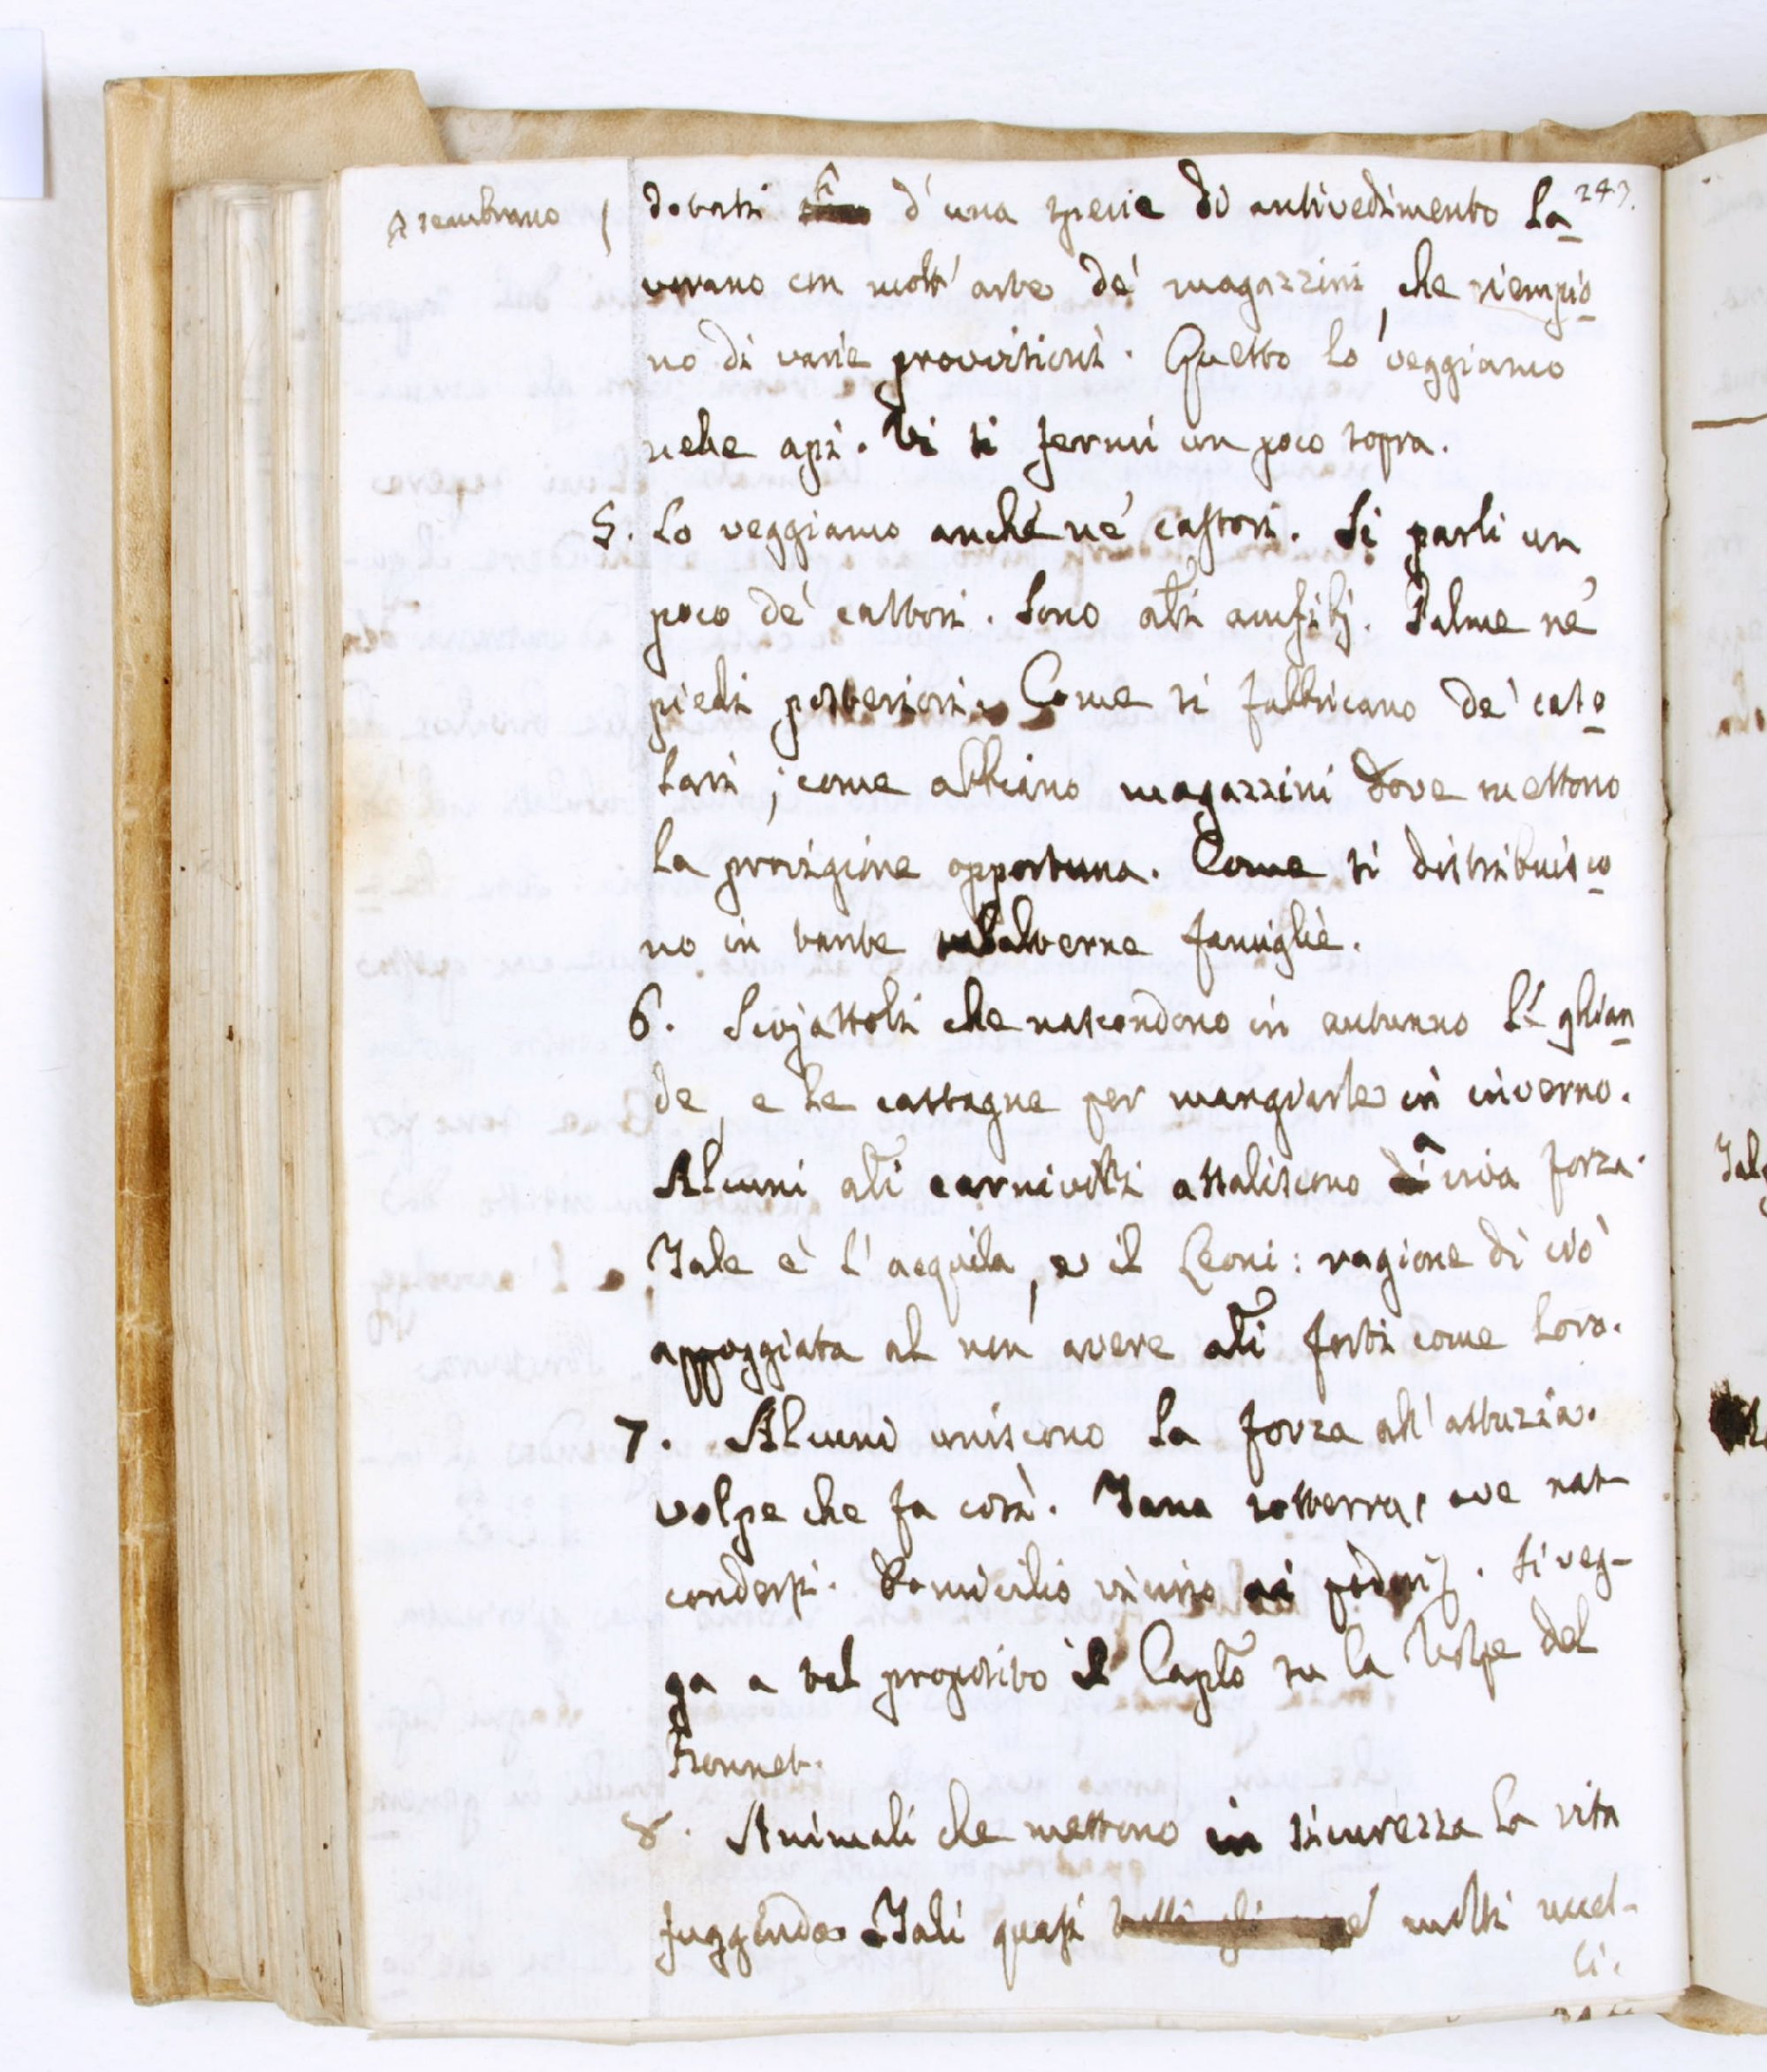 247.
A sembrano /
dotati d'una specie di antivedimento la
vorano con molt' arte de' magazzini, che riempio
no di varie provvisioni. Questo lo veggiamo
nelle api. Vi si fermi un poco sopra.
5. Lo veggiamo anche ne' castori. Si parli un
poco de' castori. Sono ali anfibj. Palme ne'
piedi posteriori. Come si fabbricano de' caso
lari, come abbiano magazzini dove mettono
la provigione opportuna. Come si distribuisco
no in tante famiglie.
6. Scojattoli che nascondono in autunno le ghian
de, e le castagne per mangiarle in inverno.
Alcuni ali carnivori assaliscono a viva forza.
Tale è l'acquila, e il Leoni: ragione di ciò
appoggiata al non avere ali forti come loro.
7. Alcuni uniscono la forza all'astuzia.
volpe che fa così. Tana sotterra, ove nas
condersi. Domicilio vicino ai poderi. Si veg-
ga a tal proposito il Caplo su la Volpe del
Bonnet.
8. Animali che mettono in sicurezza la vita
fuggendo. Tali quasi tutti gli molti uccel-
li.